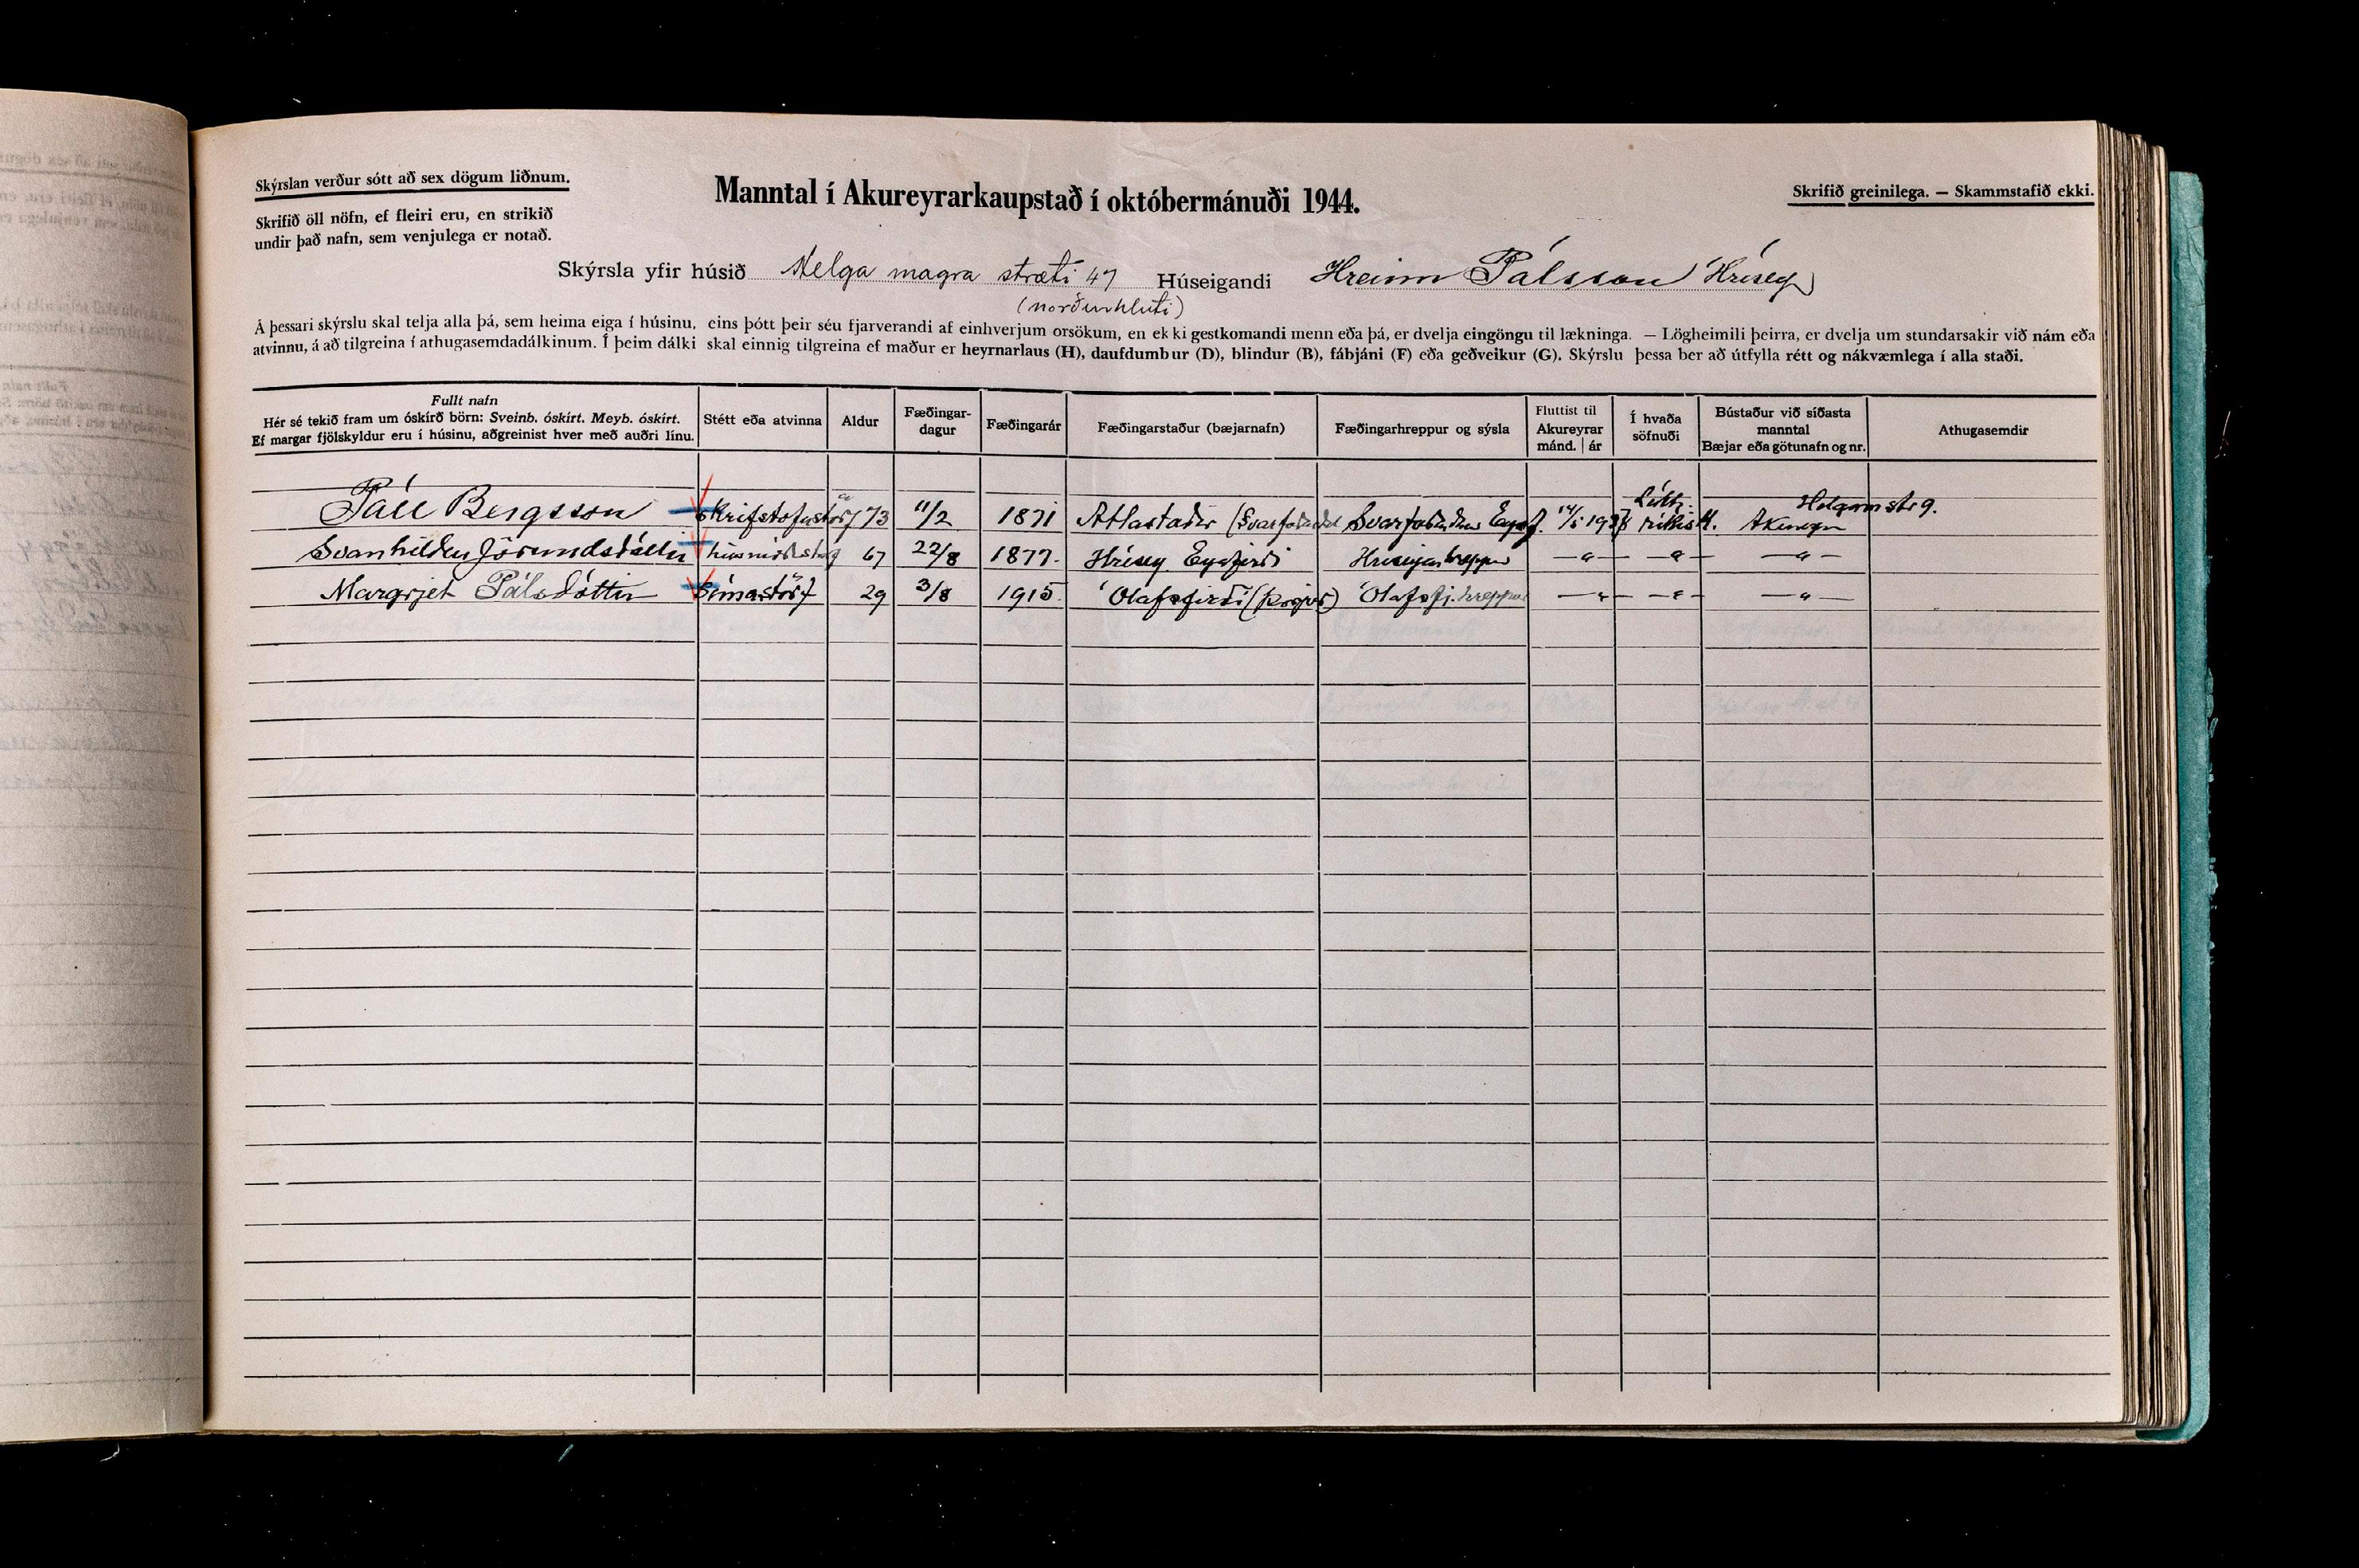 Skýrslan verður sótt að sex dögum liðnum.
Skrifið öll nöfn, ef fleiri eru, en strikið
undir það nafn, sem venjulega er notað.
Manntal í Akureyrarkaupstað í októbermánuði 1944.
Skrifið greinilega. — Skammstafið ekki.
Skýrsla yfir húsið Helga magra stræti 47 Húseigandi Hreinn Pálsson Hrísey
(norðurhluti)
Á þessari skýrslu skal telja alla þá, sem heima eiga í húsinu, eins þótt þeir séu fjarverandi af einhverjum orsökum, en ekki gestkomandi menn eða þá, er dvelja eingöngu til lækninga. — Lögheimili þeirra, er dvelja um stundarsakir við nám eða
atvinnu, á að tilgreina í athugasemdadálkinum. Í þeim dálki skal einnig tilgreina ef maður er heyrnarlaus (H), daufdumbur (D), blindur (B), fábjáni (F) eða geðveikur (G). Skýrslu þessa ber að útfylla rétt og nákvæmlega í alla staði.
Fullt nafn
Hér sé tekið fram um óskírð börn: Sveinb. óskírt. Meyb. óskírt.
Ef margar fjölskyldur eru í húsinu, aðgreinist hver með auðri línu.
Stétt eða atvinna
Aldur
Fæðingar-
dagur
Fæðingarár
Fæðingarstaður (bæjarnafn)
Fæðingarhreppur og sýsla
Fluttist til
Akureyrar
mánd. | ár
Í hvaða
söfnuði
Bústaður við síðasta
manntal
Bæjar eða götunafn og nr.
Athugasemdir
Páll Bergsson skrifstofustörf 73 11/2 1871 Atlastaðir (Svarfaðardal Svarfaðardalur Eyjaf. 14/5 Lúth. ríkisk. Helgam.str 9. Akureyri
Svanhildur Jörundsdóttir húsmóðurstörf 67 22/8 1877. Hrísey Eyjafirði Hríseyjarhreppur —"— —"— —"—
Margrjet Pálsdóttir Símastörf 29 3/8 1915. Ólafsfirði Ólafsfj.hreppur —"— —"— —"—